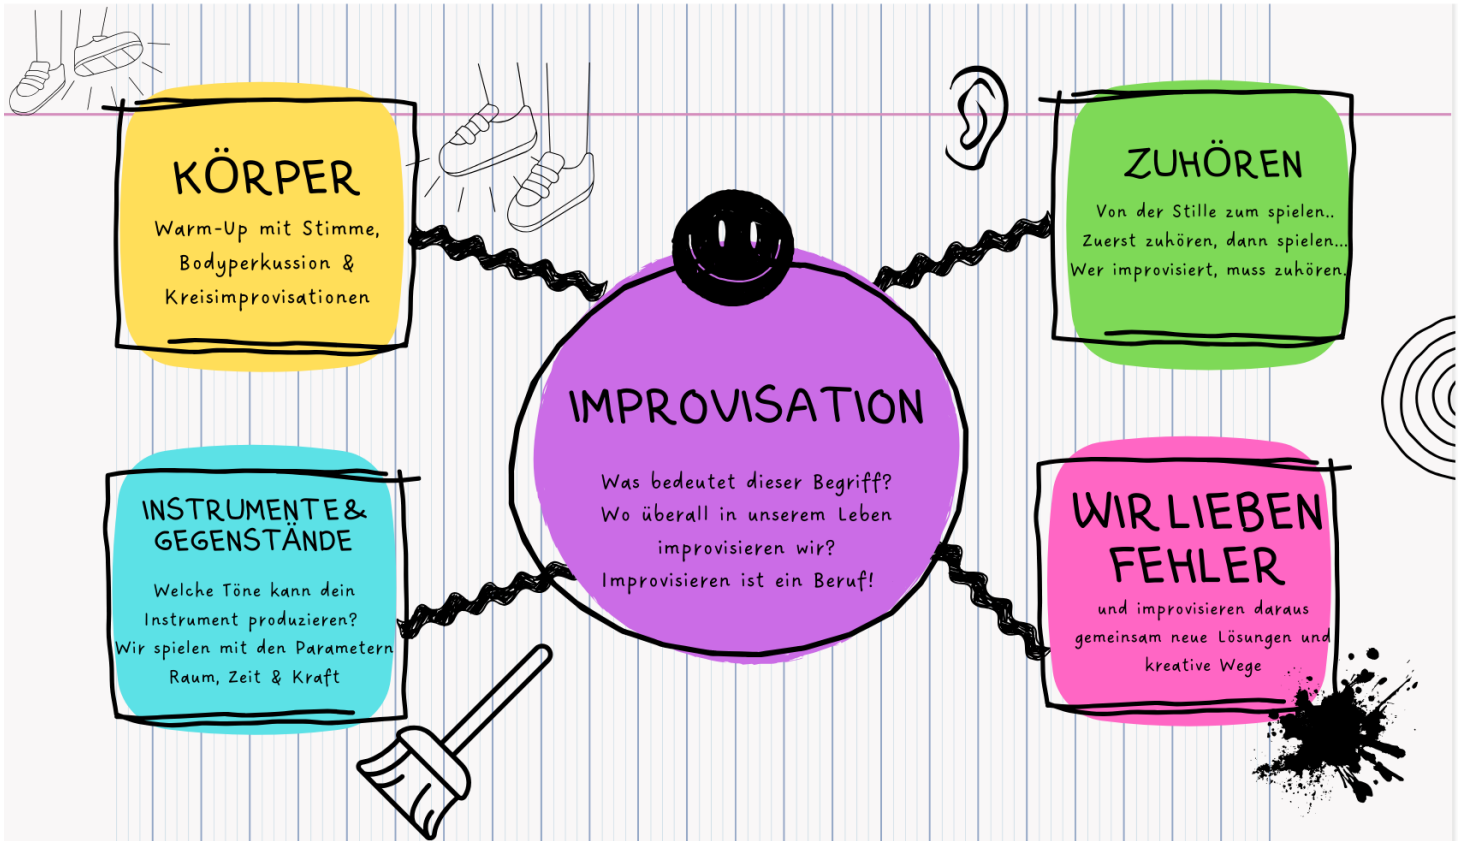 KÖRPER
Warm-Up mit Stimme,
Bodyperkussion &
Kreisimprovisationen
ZUHÖREN
Von der Stille zum spielen..
Zuerst zuhören, dann spielen...
Wer improvisiert, muss zuhören.
IMPROVISATION
Was bedeutet dieser Begriff?
Wo überall in unserem Leben
improvisieren wir?
Improvisieren ist ein Beruf!
INSTRUMENTE&
GEGENSTÄNDE
Welche Töne kann dein
Instrument produzieren?
Wir spielen mit den Parametern
Raum, Zeit & Kraft
WIR LIEBEN
FEHLER
und improvisieren daraus
gemeinsam neue Lösungen und
kreative Wege